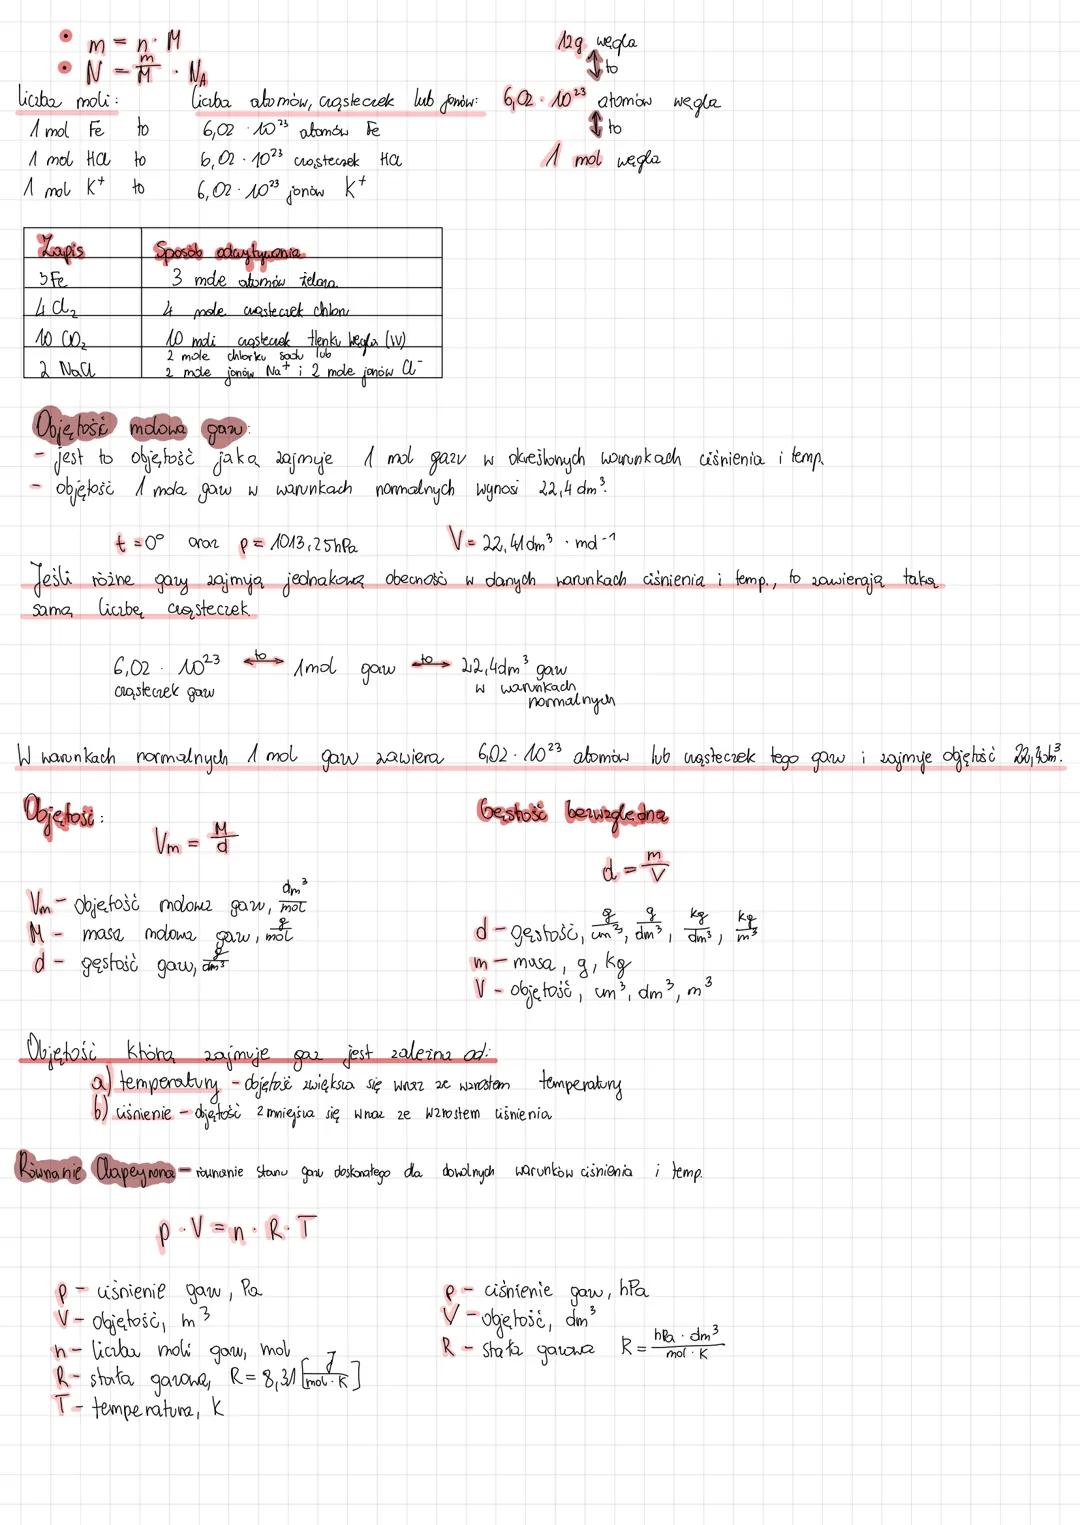 • m = n · M
• N = m/M · N_A
liczba moli: liczba atomów, cząsteczek lub jonów:
1 mol Fe to 6,02 · 10²³ atomów Fe
1 mol HCl to 6,02 · 10²³ cząsteczek HCl
1 mol K⁺ to 6,02 · 10²³ jonów K⁺
12g węgla
↕ to
6,02 · 10²³ atomów węgla
↕ to
1 mol węgla
Zapis Sposób odczytywania
3 Fe 3 mole atomów żelaza
4 Cl₂ 4 mole cząsteczek chloru
10 CO₂ 10 moli cząsteczek tlenku węgla (IV)
2 NaCl 2 mole chlorku sodu lub
2 mole jonów Na⁺ i 2 mole jonów Cl⁻
Objętość molowa gazu:
- jest to objętość jaką zajmuje 1 mol gazu w określonych warunkach ciśnienia i temp.
- objętość 1 mola gazu w warunkach normalnych wynosi 22,4 dm³.
t = 0° oraz p = 1013,25 hPa V = 22,41 dm³ · mol⁻¹
Jeśli różne gazy zajmują jednakową obecność w danych warunkach ciśnienia i temp., to zawierają taką
samą liczbę cząsteczek.
6,02 · 10²³ ↔ to 1 mol gazu ↔ to 22,4 dm³ gazu
cząsteczek gazu w warunkach
normalnych
W warunkach normalnych 1 mol gazu zawiera 6,02 · 10²³ atomów lub cząsteczek tego gazu i zajmuje objętość 22,4 dm³.
Objętość:
Vm = M/d
Vm - objętość molowa gazu, dm³/mol
M - masa molowa gazu, g/mol
d - gęstość gazu, g/dm³
Gęstość bezwzględna
d = m/V
d - gęstość, g/cm³, g/dm³, kg/dm³, kg/m³
m - masa, g, kg
V - objętość, cm³, dm³, m³
Objętość którą zajmuje gaz jest zależna od:
a) temperatury - objętość zwiększa się wraz ze wzrostem temperatury
b) ciśnienie - objętość zmniejsza się wraz ze wzrostem ciśnienia
Równanie Clapeyrona - równanie stanu gazu doskonałego dla dowolnych warunków ciśnienia i temp.
p · V = n · R · T
p - ciśnienie gazu, Pa
V - objętość, m³
n - liczba moli gazu, mol
R - stała gazowa, R = 8,31 [J/mol · K]
T - temperatura, K
p - ciśnienie gazu, hPa
V - objętość, dm³
R - stała gazowa R = hPa · dm³/mol · K